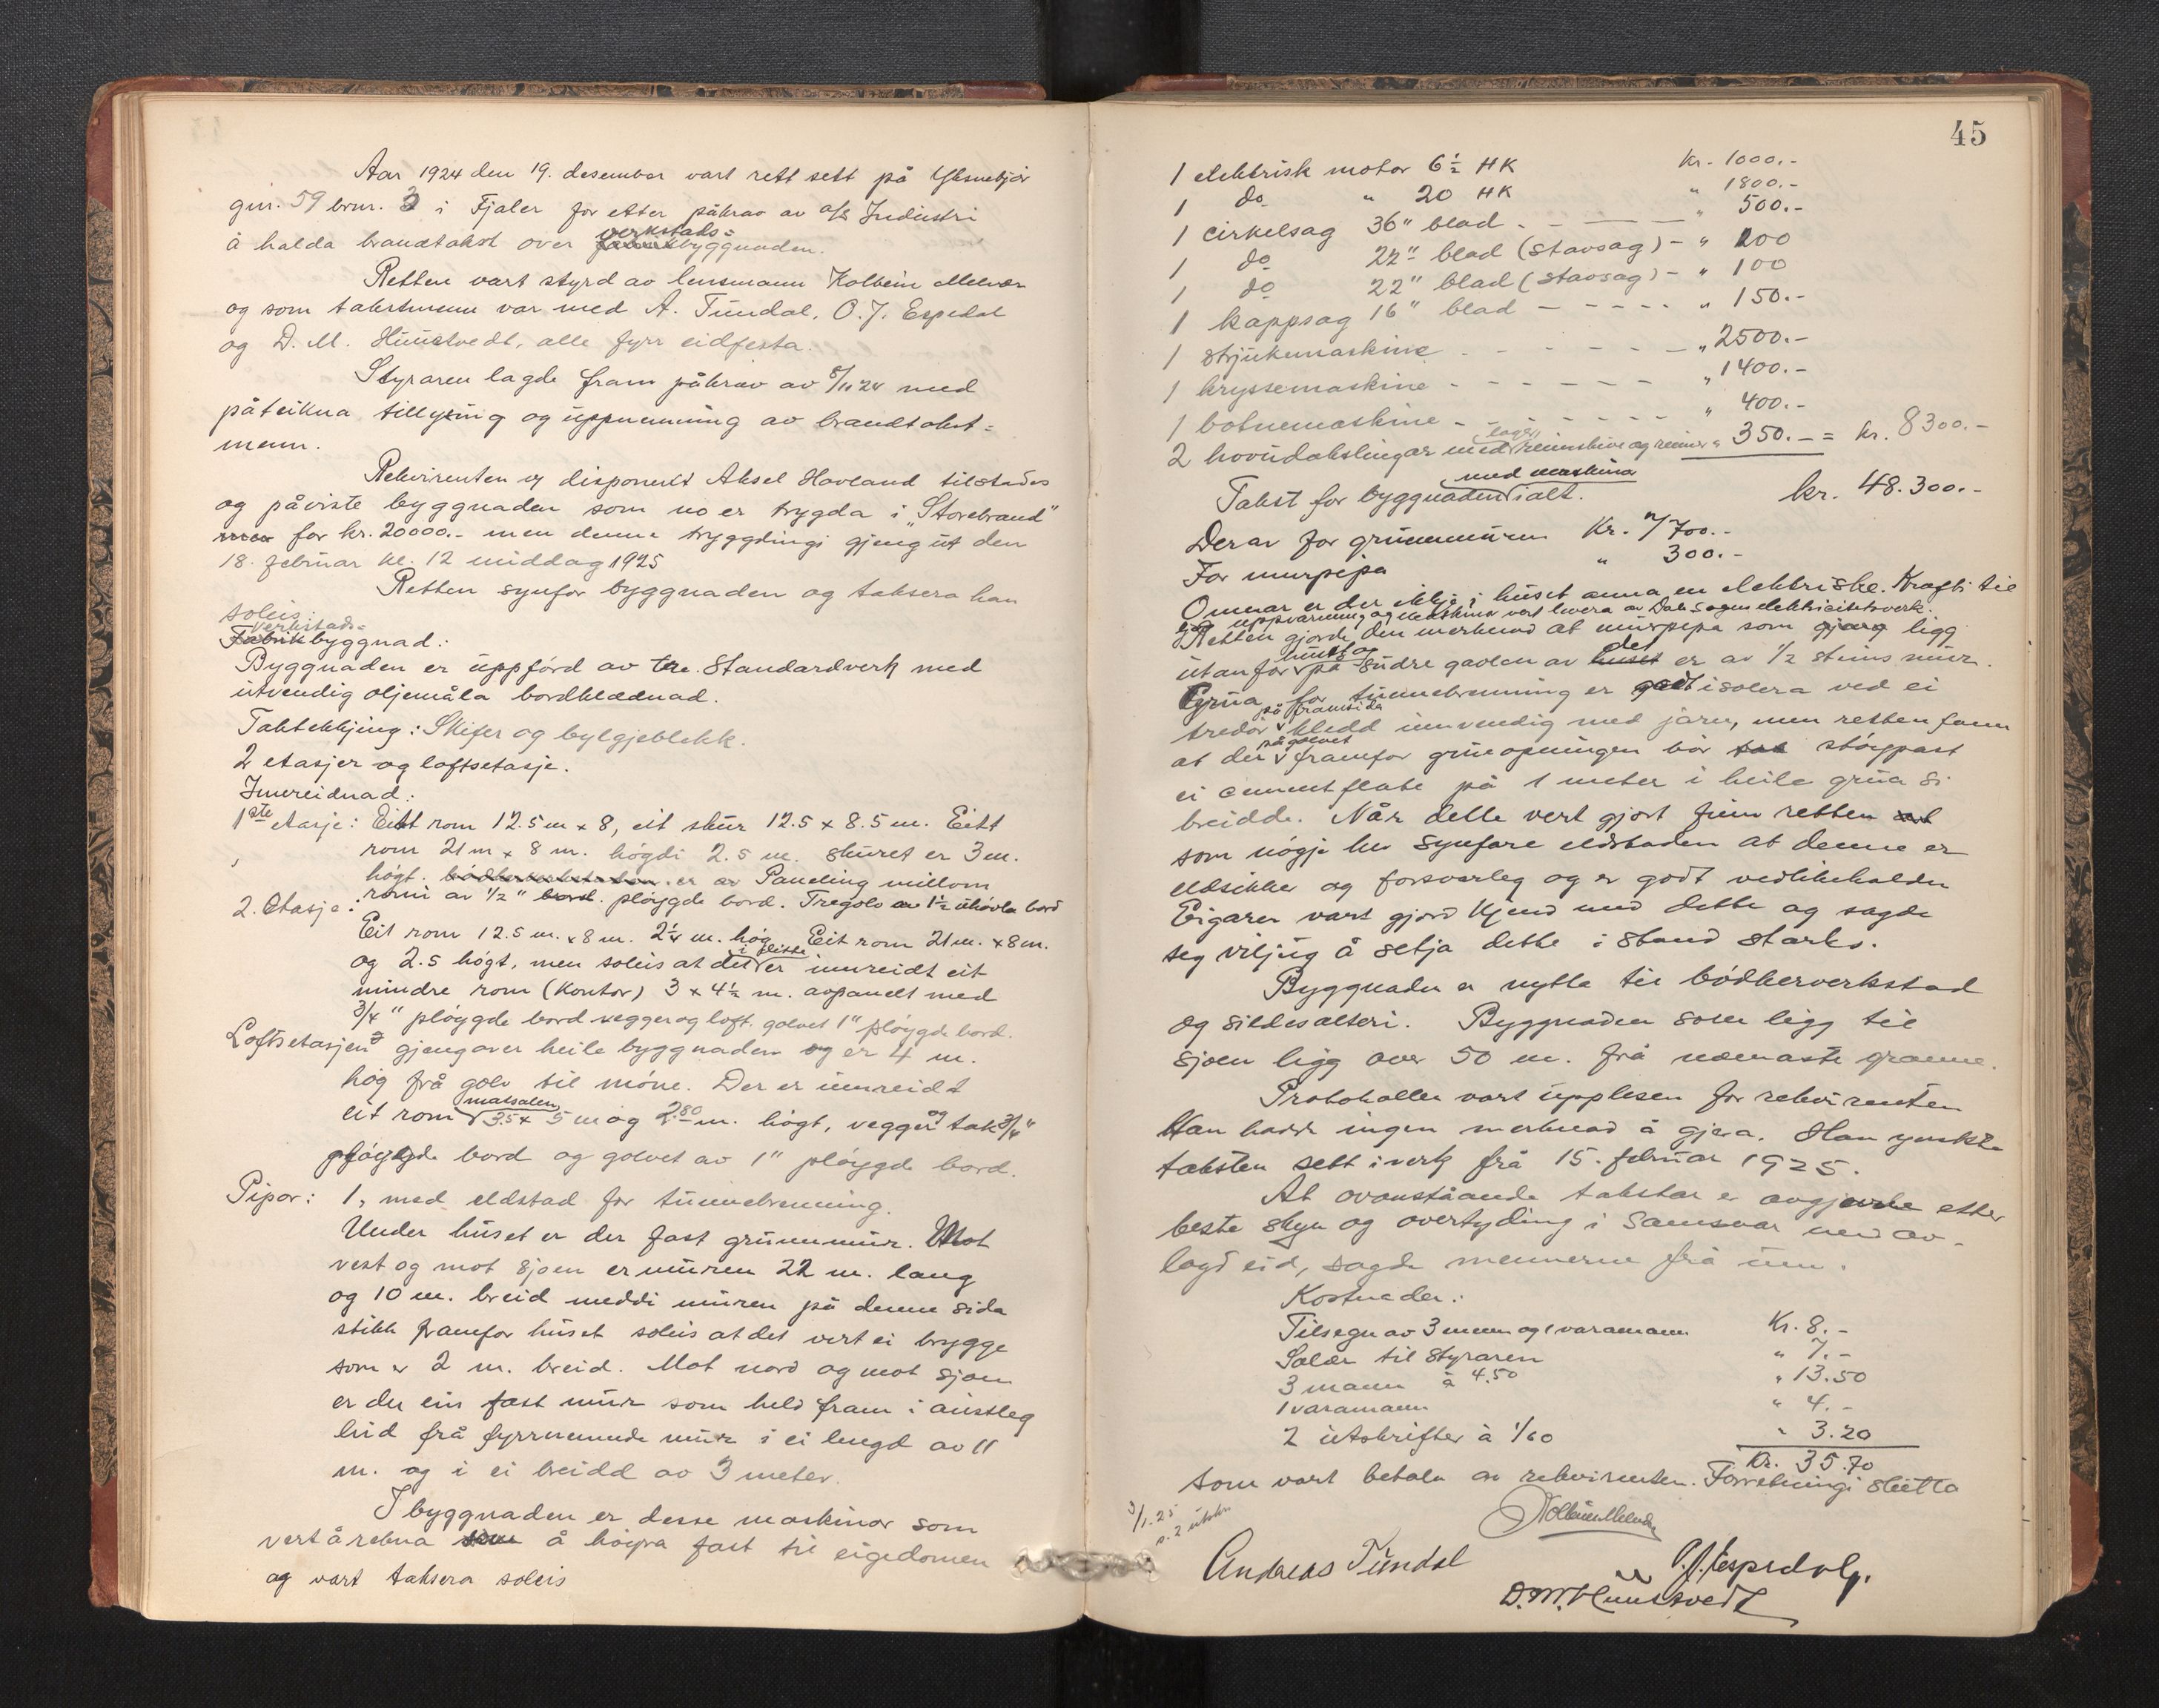 Aar 1924 den 19. desember vart rett sett på Yksnebjör
gnr. 59 brnr. 3 i Fjaler for etter påkrav av a/s Industri
å halda brandtakst over fabrikbyggnaden.
verkstads=
Retten vart styrd av lensmann Kolbein Melvær
og som takstmenn var med A. Tündal, O. J. Espedal
og D. M. Hünstvedt, alle fyrr eidfesta.
Styraren lagde fram påkrav av 8/11 24 med
påteikna tillysing og üppnemning av brandtakst=
menn.
Rekvirenten ved disponent Aksel Havland tilstades
og påviste byggnaden som no er trygda i "Storebrand"
for kr. 20000.- men denne tryggdingi gjeng üt den
18. februar kl. 12 middag 1925
Retten synfor byggnaden og taksera han
soleis:
verkstads=
Fabrikbyggnad:
Byggnaden er üppförd av tre. Standardverk med
ütvendig oljemåla bordklædnad.
Taktekkjing: Skifer og bylgjeblekk.
2 etasjer og loftsetasje.
Innreidnad:
1ste etasje: Eitt rom 12.5 m x 8, eit skür 12.5 x 8.5 m. Eitt
rom 21 m x 8 m. högdi 2.5 m. skuret er 3 m.
högt. er av Paneling millom
romi av 1/2" bord. plöygde bord. Tregolv av 1 1/2 uhövla bord
2. Etasje:
Eit rom 12.5 m. x 8 m. 2 1/4 m. hög Eit rom 21 m. x 8 m.
i dette
og 2.5 högt, men soleis at det er innreidt eit
mindre rom (kontor) 3 x 4 1/2 m. avpanelt med
3/4" plöygde bord vegger og loft. golvet 1" plöygde bord.
Loftsetasjen gjeng over heile byggnaden og er 4 m.
hög frå golv til möne. Der er innreidt
matsalen
eit rom 3.5 x 5 m og 2.80 m. högt, vegger og tak 3/4"
plöygde bord og golvet av 1" plöygde bord.
Pipor: 1, med eldstad for tünnebrenning.
Under hüset er der fast grünnmür. Mot
vest og mot sjøen er müren 22 m. lang
og 10 m. breid meddi müren på denne sida
stikk framfor hüset soleis at det vert ei brygge
som er 2 m. breid. Mot nord og mot sjøen
er der ein fast mür som held fram i aüstleg
leid frå fyrrnemnde mür i ei lengd av 11
m. og i ei breidd av 3 meter.
I byggnaden er desse maskinor som
vert å rekna som å höyra fast til eigedomen
og vart taksera soleis
45
1 elektrisk motor 6 1/2 HK kr. 1000.-
1 do " 20 HK " 1800.-
1 cirkelsag 36" blad - " 500.-
1 do 22" blad (stavsag) - " 200
1 do 22" blad (stavsag) - " 100
1 kappsag 16" blad - - - - " 150.-
1 strjukemaskine - - - - - " 2500.-
1 kryssemaskine - - - - - - " 1400.-
1 botnemaskine - - - - - - " 400.-
lager,
2 hovüdakslingar med reimskive og reimer " 350.- = kr. 8300.-
med maskina
Takst for byggnaden ialt. kr. 48.300.-
Derav for grünnmüren Kr. 7700.-
For murpipa " 300.-
Omnar er der ikkje i hüset anna en elektriske. Kraft til
og uppvarming og maskiner vert levera av Dale Sogns elektricitetsverk.
Retten gjorde den merknad at mürpipa som ligg
hüset og det
ütanför på südre gavlen av huset er av 1/2 steins mür.
Grüa for tünnebrenning er godt isolera ved ei
på framsida
tredör kledd innvendig med jarn, men retten fann
på golvet
at der framfor grüeopningen bör stöypast
ei cementflate på 1 meter i heile grüa si
breidde. Når dette vert gjort finn retten
som nögje hev synfare eldstaden at denne er
eldsikker og forsvarleg og er godt vedlikehalden
Eigaren vart gjord kjend med dette og sagde
seg viljüg å setja dette i stand straks.
Byggnaden er nytta til bödkerverkstad
og sildesalteri. Byggnaden som ligg til
sjøen ligg over 50 m. frå næmaste granne.
Protokollen vart üpplesen for rekvirenten
Han hadde ingen merknad å gjera. Han ynskte
taksten sett i verk frå 15. februar 1925.
At ovanståande takster er avgjevne etter
beste skyn og overtyding i samsvar med av-
lagd eid, sagde mennerne frå üm.
Kostnader:
Tilsegn av 3 menn og 1 varamann Kr. 8.-
Salær til styraren " 7.-
3 mann à 4.50 " 13.50
1 varamann " 4.-
2 ütskrifter à 1/60 " 3.20
Kr. 35.70
som vart betala av rekvirenten. Forretningi slütta
3/1.25
p. 2 utskr
Kolbein Melvær
Andreas Tündal
O. J. Espedal.
D. M. Hünstvedt